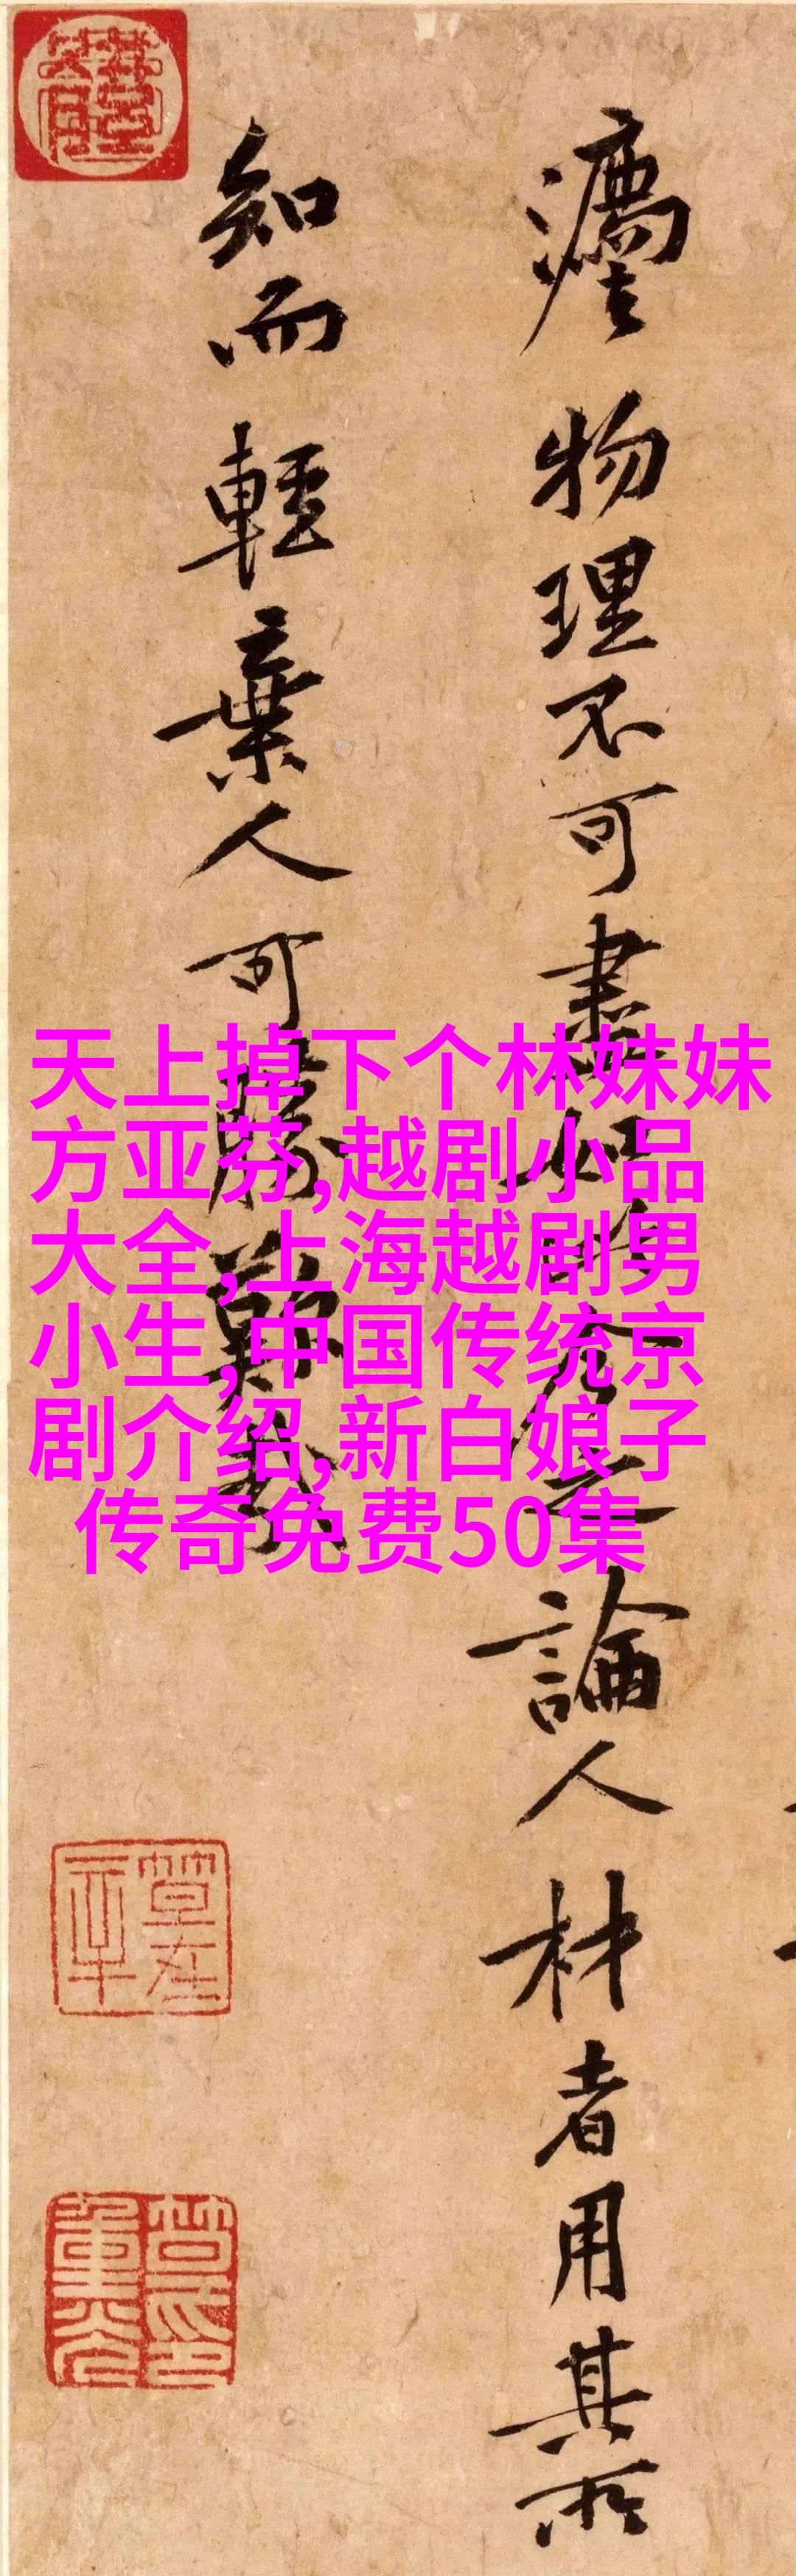 物理不可盡如此今之論人材者用其所
知而輕棄人可勝歎哉
天上掉下个林妹妹
方亚芬,越剧小品
大全,上海越剧男
小生,中国传统京
剧介绍,新白娘子
传奇免费50集